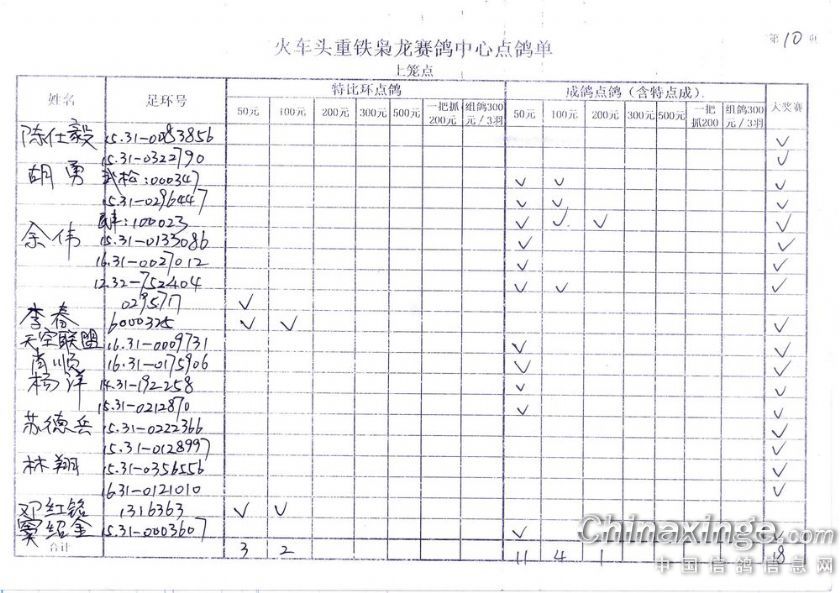 第10页
火车头重铁枭龙赛鸽中心点鸽单
上笼点
姓名 足环号 特比环点鸽 成鸽点鸽（含特点成） 大奖赛
50元 100元 200元 300元 500元 一把抓200元 组鸽300元/3羽 50元 100元 200元 300元 500元 一把抓200 组鸽300元/3羽
陈仕毅 15.31-0083856 ✓
15.31-0322790 ✓
胡勇 武松:000347 ✓ ✓ ✓
15.31-0296447 ✓ ✓ ✓
:100023 ✓ ✓ ✓ ✓
余伟 15.31-0133086 ✓ ✓
16.31-0027012 ✓ ✓
12.32-752404 ✓ ✓ ✓
029577 ✓
李春 6000325 ✓ ✓ ✓
天空联盟 16.31-0009731 ✓ ✓
肖顺 16.31-0175906 ✓ ✓
杨洋 14.31-192258 ✓ ✓
15.31-0212870 ✓ ✓
苏德岳 15.31-0222366 ✓
15.31-0128997 ✓
林翔 15.31-0356556 ✓
16.31-0121010 ✓
邓红铭 1316363 ✓ ✓
窦绍金 15.31-0003607 ✓ ✓
合计 3 2 11 4 1 18
Chinaxinge.com
中国信鸽信息网